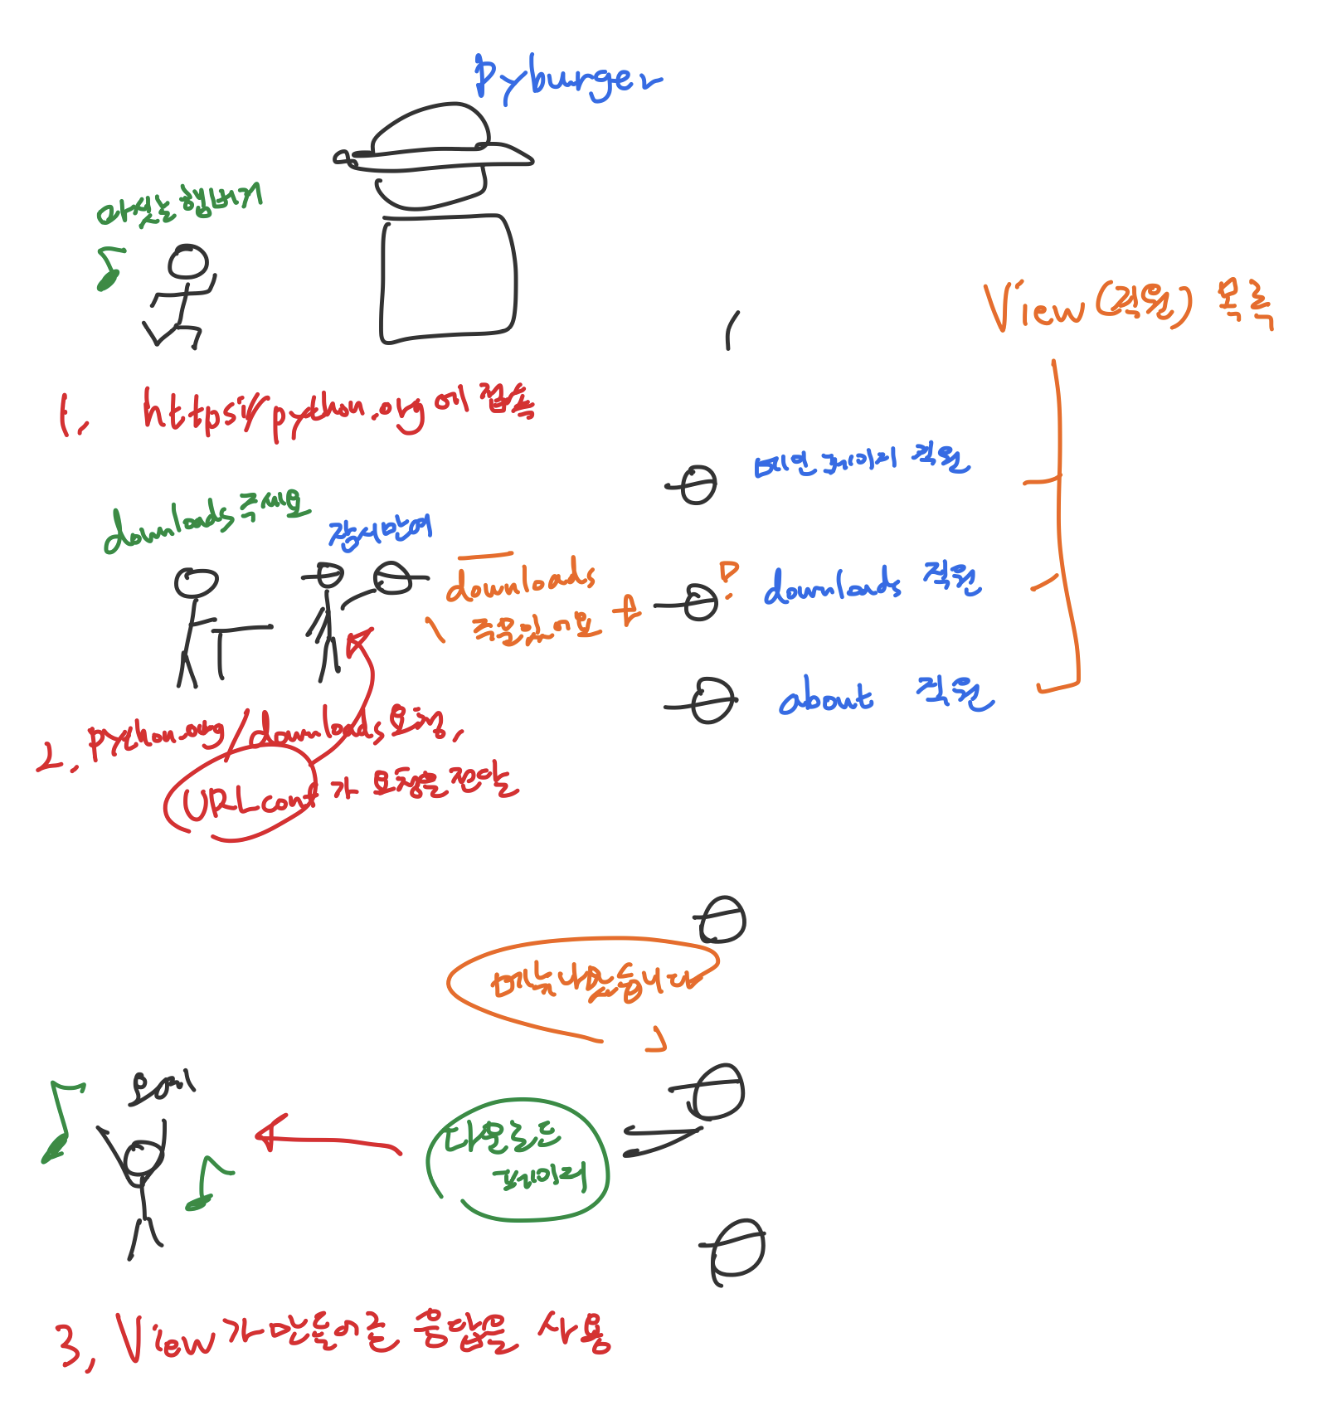 Pyburger
맛있는햄버거
View (직원) 목록
1. https://python.org에 접속
메인페이지 직원
downloads 주세요
잠시만여
downloads
주문있어요
downloads 직원
about 직원
2. python.org/downloads 요청,
URLconf가 요청을 전달
메뉴나왔습니다
다운로드
페이지
3. View가 만들어준 응답을 사용